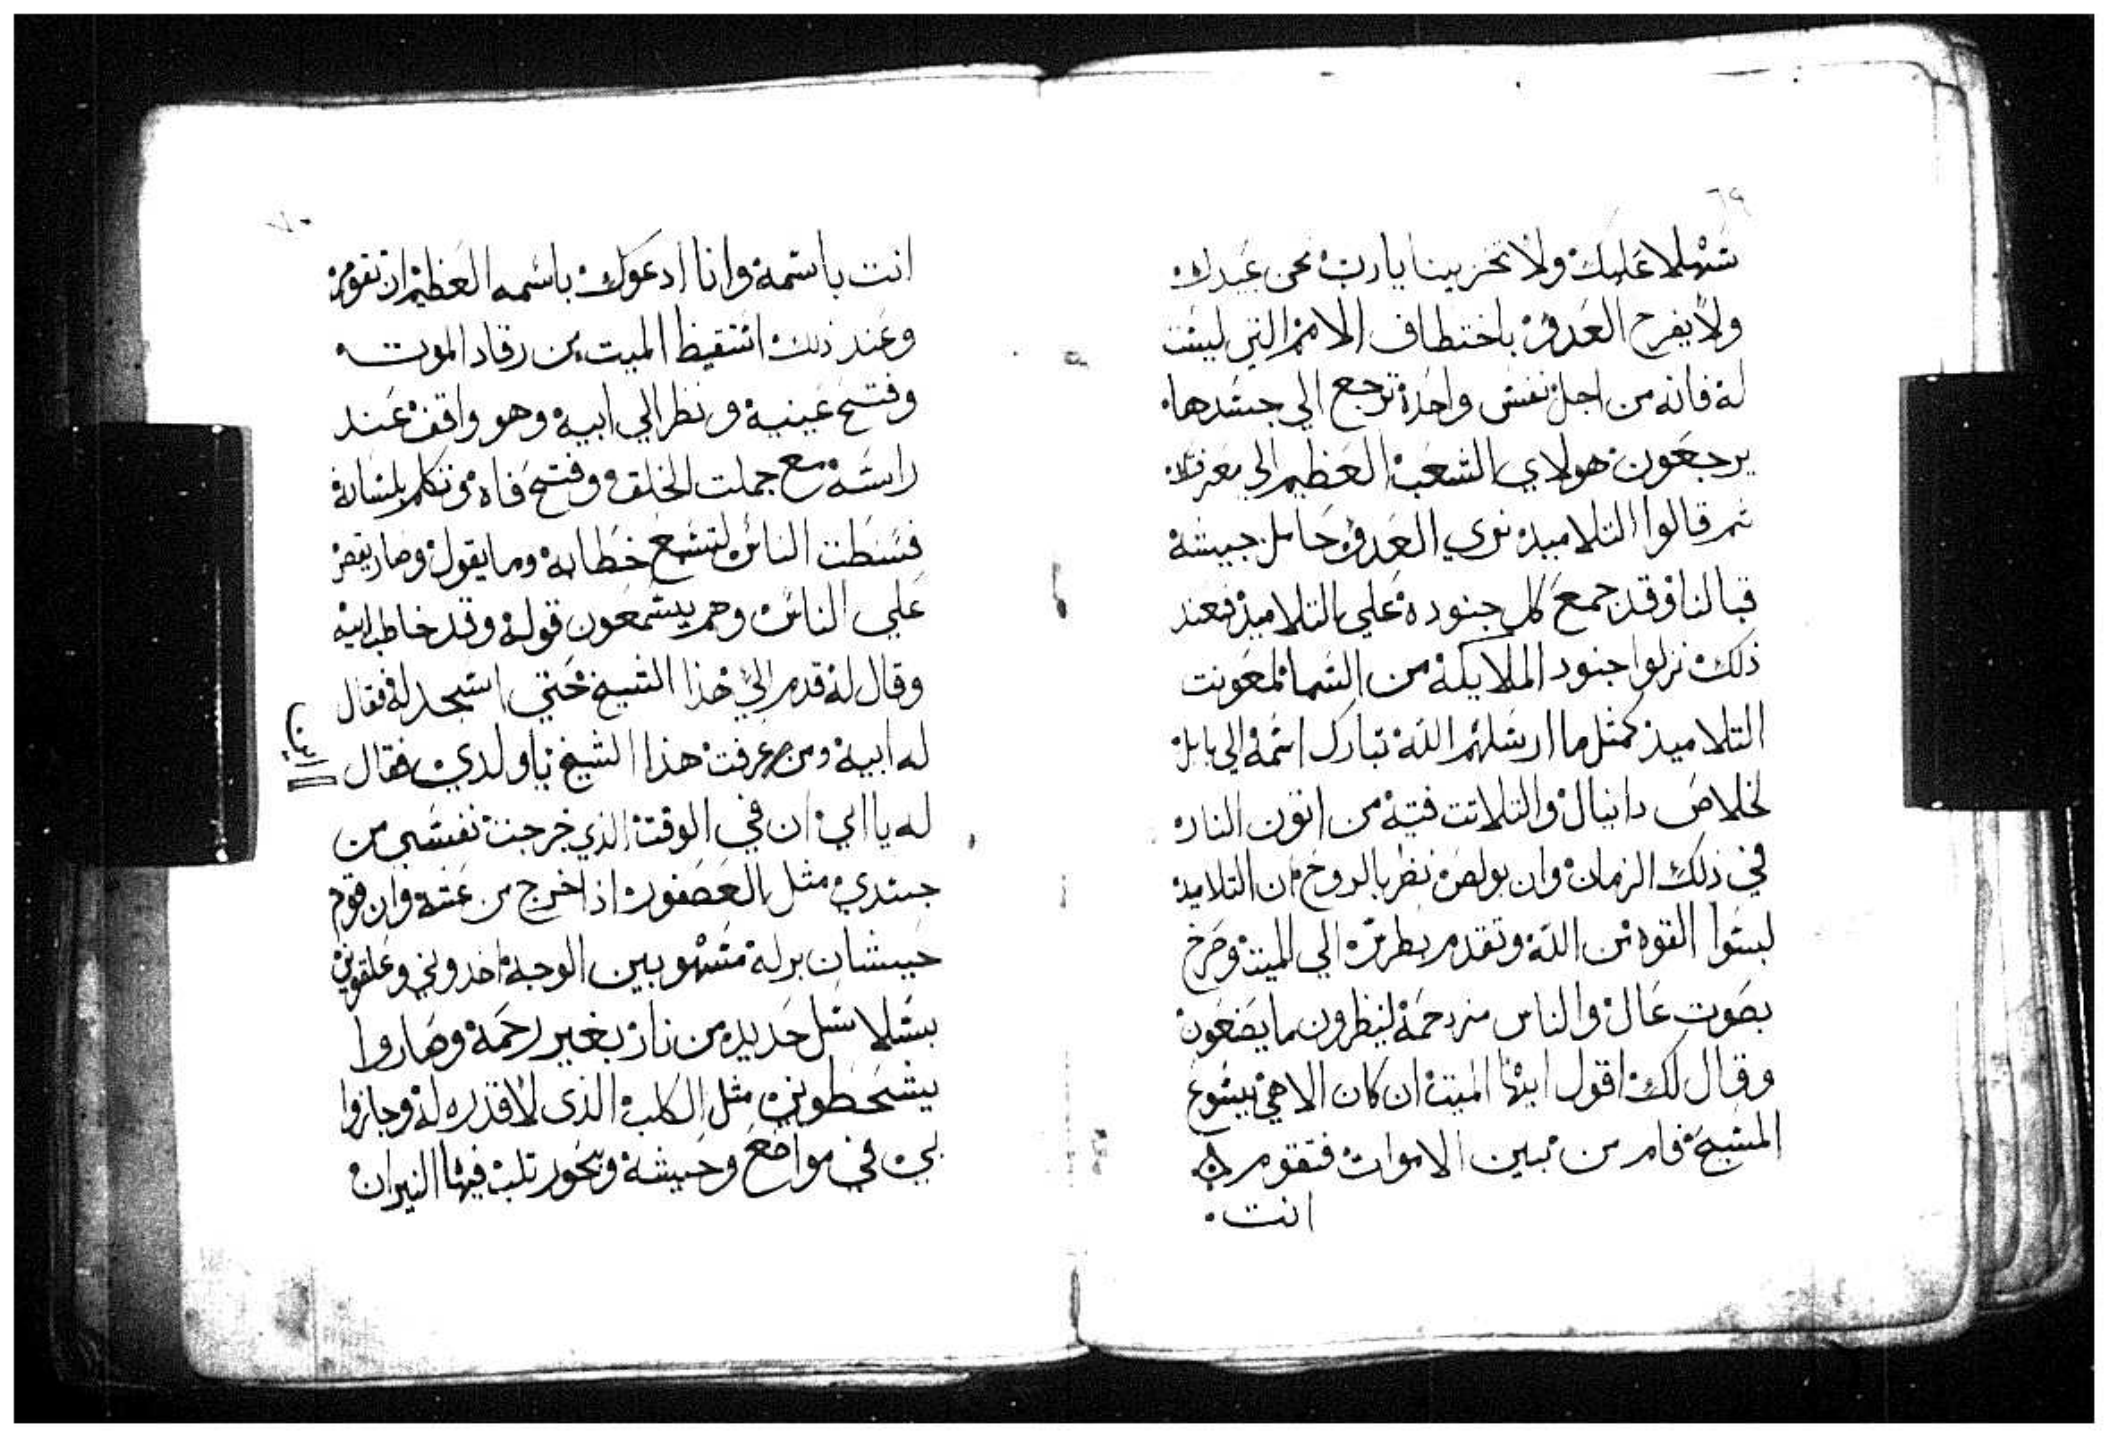 ٦٩
سهلا عليك ولا تخزينا يارب نحن عبيدك
ولا يفرح العدو باختطاف الامم التي ليست
له فانه من اجل نفس واحدة ترجع الي جسدها
يرجعون هولاي الشعب العظيم الي معرفتك
ثم قالوا التلاميذ نري العدو حامل جيشه
قبالنا وقد جمع كل جنوده علي التلاميذ فعند
ذلك نزلوا جنود الملايكة من السما لمعونت
التلاميذ كمثل ما ارسلهم الله تبارك اسمه الي بابل
لخلاص دانيال والتلاتت فتية من اتون النار
في ذلك الزمان وان بولص نظر بالروح ان التلاميذ
لبسوا القوه من الله وتقدم بطرس الي الميت وصرخ
بصوت عال والناس مزدحمة لينظرون ما يصنعون
وقال لك اقول ايها الميت ان كان الاهي يسوع
المسيح قام من بين الاموات فتقوم
انت
٧٠
انت باسمه وانا ادعوك باسمه العظيم ان تقوم
وعند ذلك استيقظ الميت من رقاد الموت
وفتح عينيه ونظر الي ابيه وهو واقف عند
راسه مع جملت الخلق وفتح فاه وتكلم بلسانه
الناس لتسمع خطابه وما يقول وصار يقص
علي الناس وهم يسمعون قوله وقد خاطب ابيه
وقال له قدم الي هذا الشيخ حتي اسجد له فقال
له ابيه ومن عرفت هذا الشيخ ياولدي فقال
له يا ابي ان في الوقت الذي خرجت نفسي من
جسدي مثل العصفور اذا خرج من عشه وان قوم
مشهوبين الوجه اخدوني وعلقوني
بسلاسل حديد من نار بغير رحمة وصاروا
يشحطوني مثل الكلب الذي لا قدره له وجازوا
بي في مواضع وحيشة وبحور تلب فيها النيران